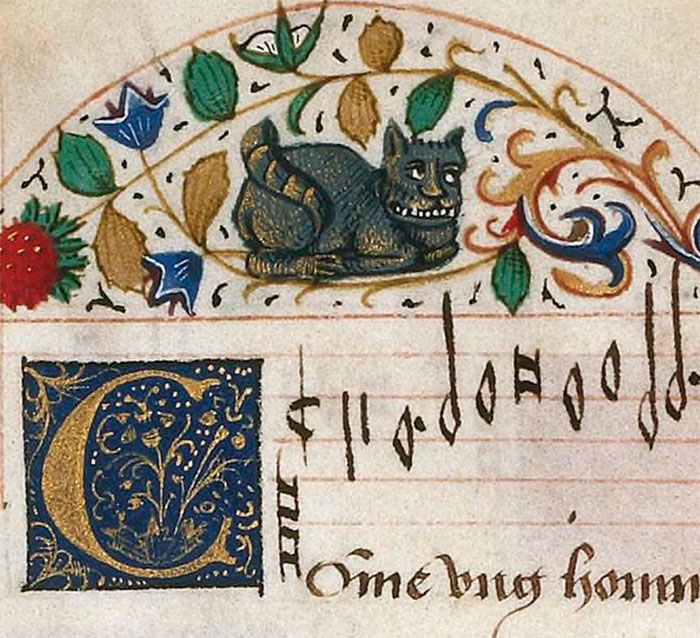 COm̃e vng homm